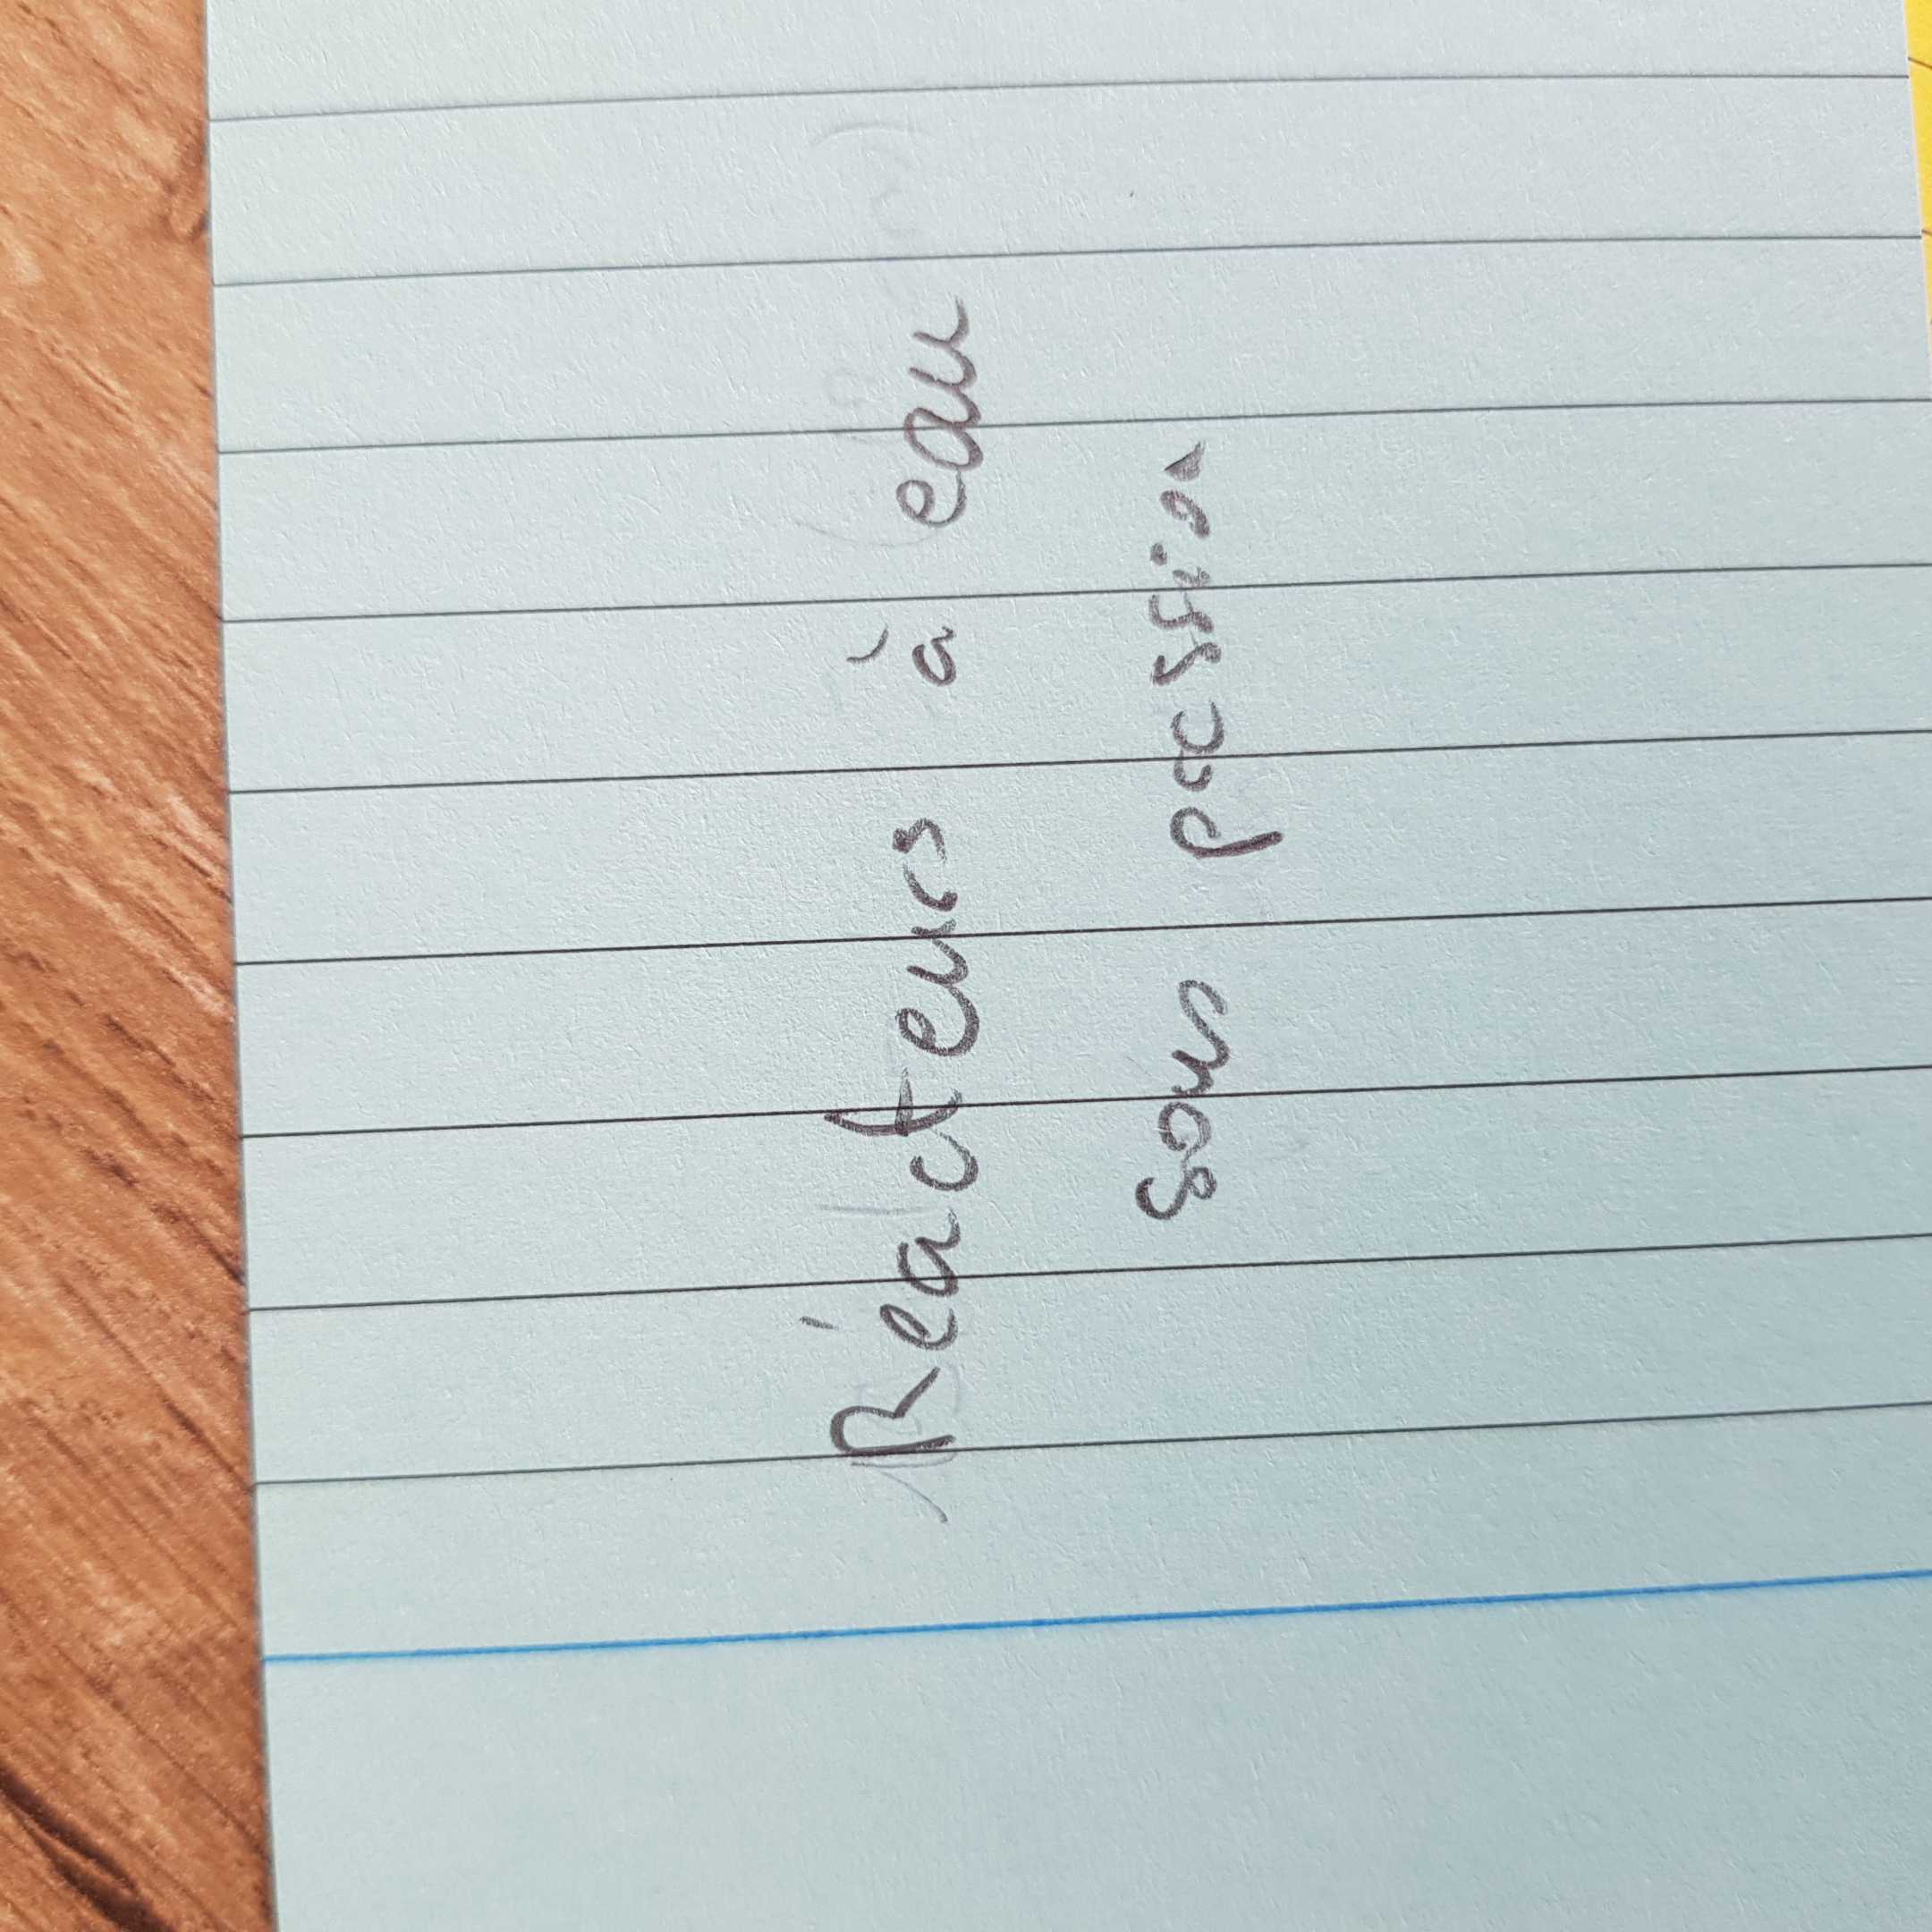 Réacteurs à eau
sous pression